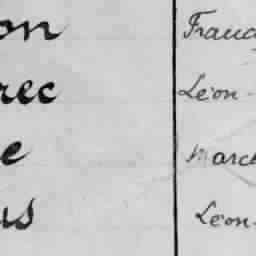 on Franç
rec Léon-
e Marce
us Léon-